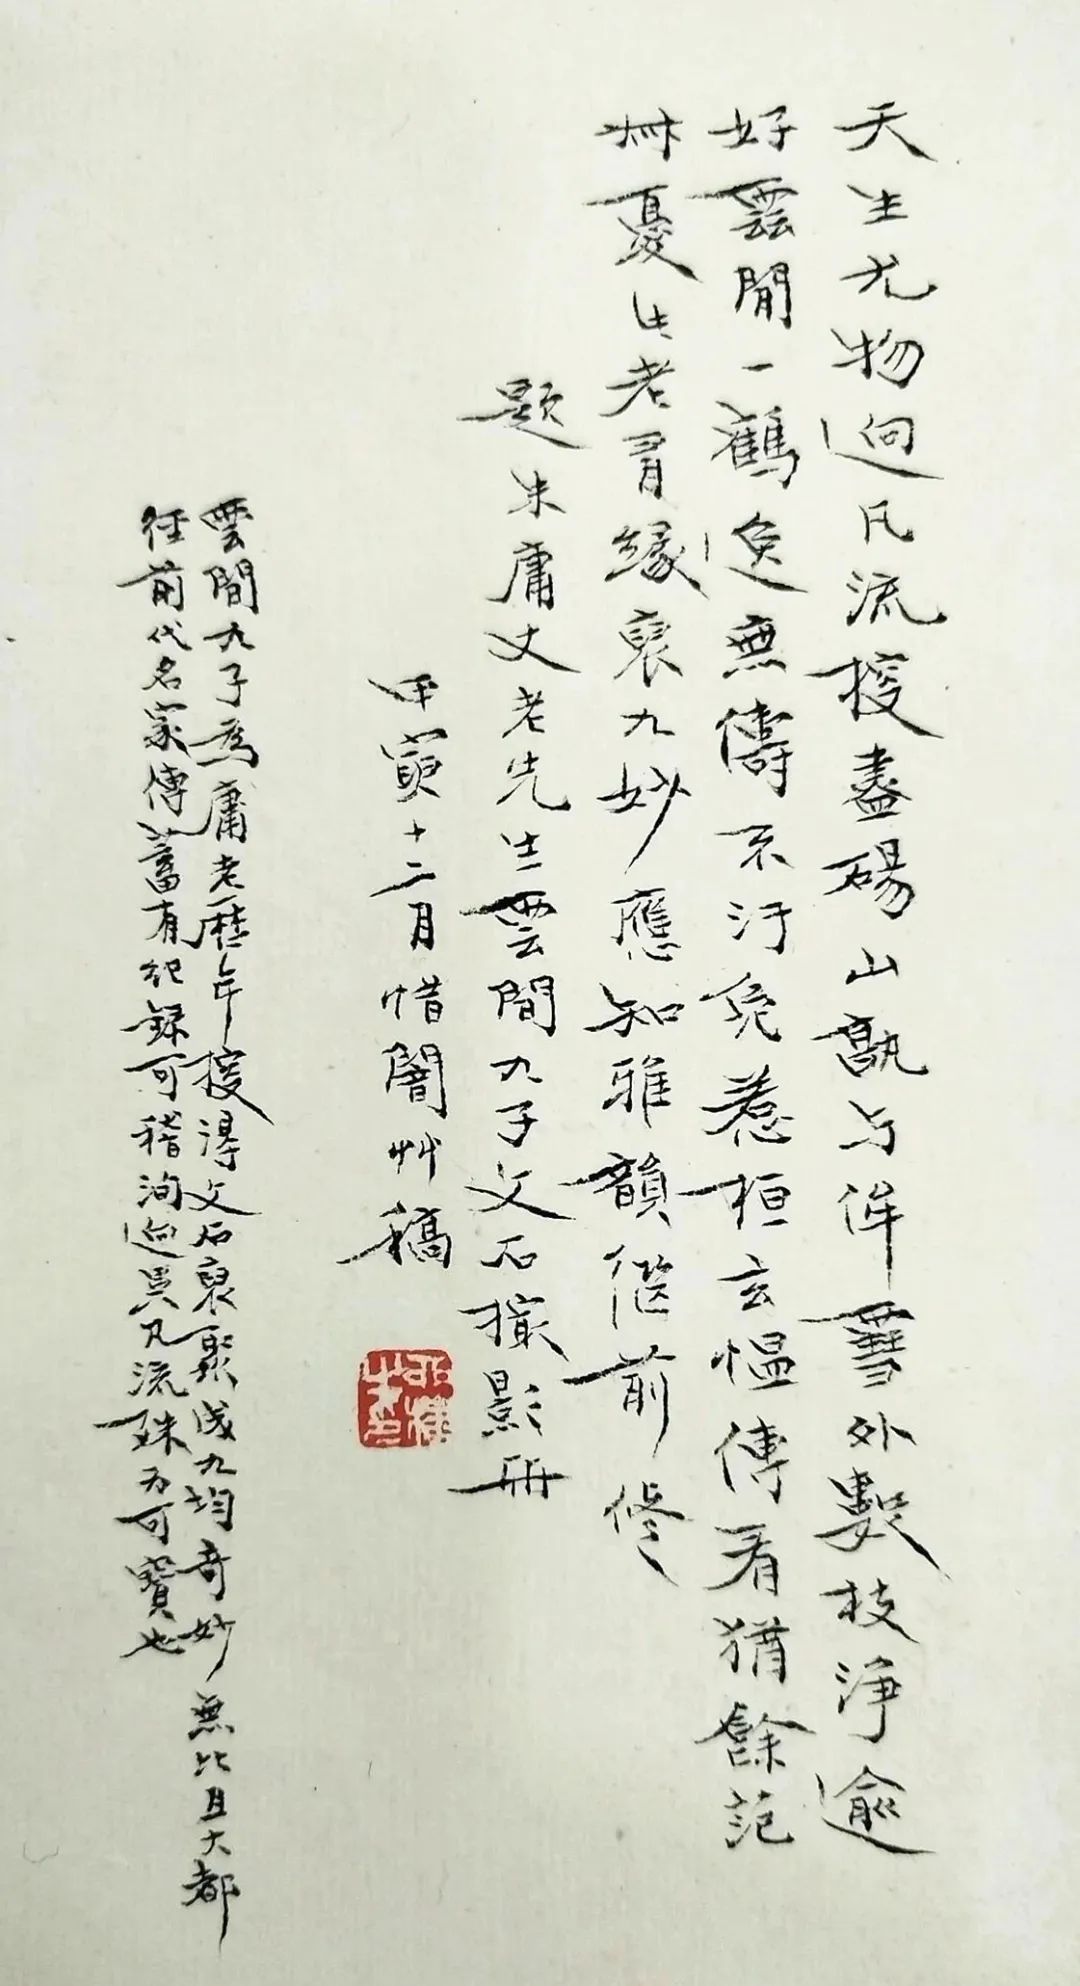 天生尤物逈凡流搜盡碭山孰与侔雪外數枝淨逾
好雲間一鶴逸無儔不汙免惹桓玄愠傳看猶餘范
憂此老有緣裒九妙應知雅韻前修
題朱庸丈老先生雲間九子文石撮影册
甲寅十二月惜闇艸稿
雲間九子為庸老歷年搜得文石裒聚成九均奇妙無比且大都
經前代名家傳蓄有紀録可稽洵逈異凡流殊为可寶也